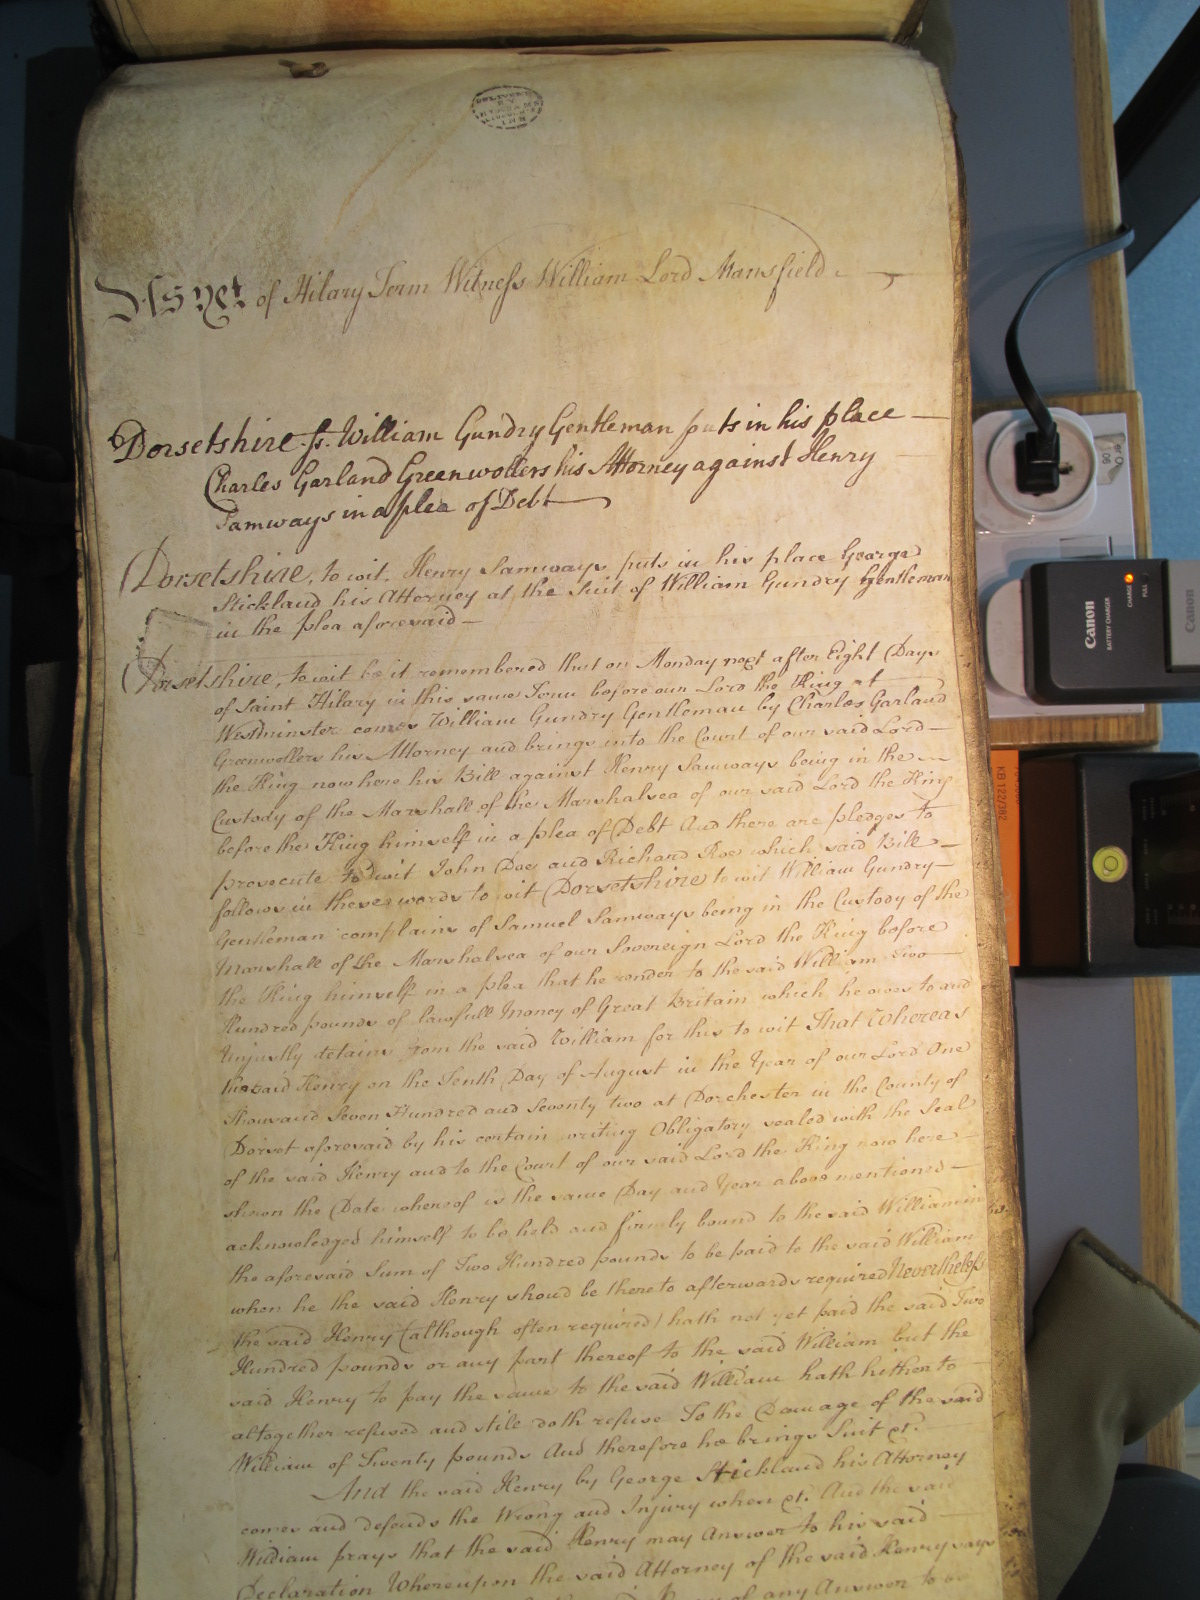 DELIVERED
BY
INN
As yet of Hilary Term Witness William Lord Mansfield
Dorsetshire ss. William Gundry Gentleman puts in his place
Charles Garland Greenwollers his Attorney against Henry
Samways in a plea of Debt
Dorsetshire, to wit. Henry Samways puts in his place George
Stickland his Attorney at the Suit of William Gundry Gentleman
in the plea aforesaid
Dorsetshire, to wit be it remembered that on Monday next after Eight Days
of Saint Hilary in this same Term before our Lord the King at
Westminster comes William Gundry Gentleman by Charles Garland
Greenwollers his Attorney and brings into the Court of our said Lord
the King now here his Bill against Henry Samways being in the
Custody of the Marshall of the Marshalsea of our said Lord the King
before the King himself in a plea of Debt And there are pledges to
prosecute to wit John Doe and Richard Roe which said Bill
follows in these words to wit Dorsetshire to wit William Gundry
Gentleman complains of Samuel Samways being in the Custody of the
Marshall of the Marshalsea of our Sovereign Lord the King before
the King himself in a plea that he render to the said William Two
Hundred pounds of lawfull Money of Great Britain which he owes to and
Unjustly detains from the said William for this to wit That Whereas
the said Henry on the Tenth Day of August in the Year of our Lord One
thousand Seven Hundred and Seventy two at Dorchester in the County of
Dorset aforesaid by his certain writing Obligatory sealed with the Seal
of the said Henry and to the Court of our said Lord the King now here
shewn the Date whereof is the same Day and Year above mentioned
acknowledged himself to be held and firmly bound to the said William in
the aforesaid Sum of Two Hundred pounds to be paid to the said William
when he the said Henry shoud be thereto afterwards required Nevertheless
the said Henry (although often required) hath not yet paid the said Two
Hundred pounds or any part thereof to the said William but the
said Henry to pay the same to the said William hath hitherto
altogether refused and still doth refuse To the Damage of the said
William of Twenty pounds And therefore he brings Suit &c.
And the said Henry by George Stickland his Attorney
comes and defends the Wrong and Injury when &c. And the said
William prays that the said Henry may Answer to his said
Declaration Whereupon the said Attorney of the said Henry says
of any Answer to
Canon
BATTERY CHARGER
CHARGE
FULL
Canon
KB 122/382